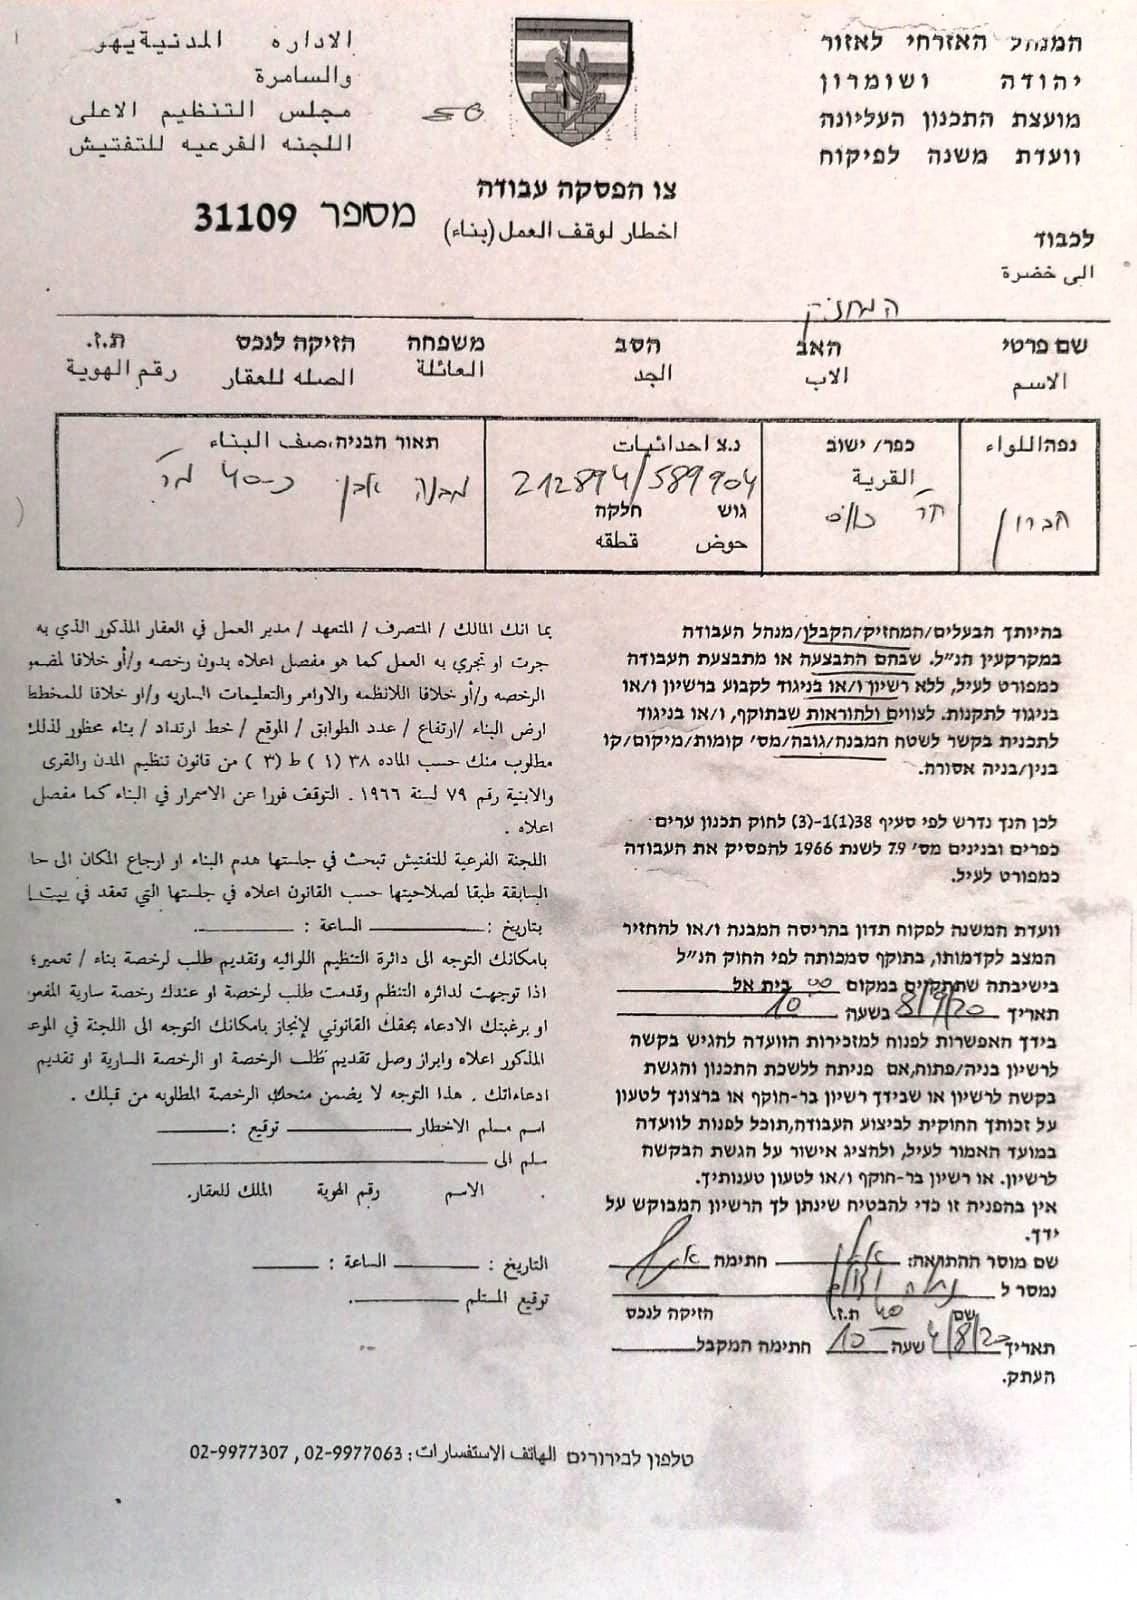 המנהל האזרחי לאזור
יהודה ושומרון
מועצת התכנון העליונה
וועדת משנה לפיקוח
الاداره المدنية يهو
والسامرة
مجلس التنظيم الاعلى
اللجنه الفرعيه للتفتيش
צו הפסקה עבודה
اخطار لوقف العمل (بناء)
מספר 31109
לכבוד
الى خضرة
המחזיק
שם פרטי האב הסב משפחה הזיקה לנכס ת.ז.
الاسم الاب الجد العائلة الصله للعقار رقم الهوية
נפה اللواء כפר/ ישוב נ.צ احداثيات תאור הבניה، صف البناء
القرية
חברון 212894/589904 מבנה אבן כ-40 מ"ר
גוש חלקה
حوض قطقه
בהיותך הבעלים/המחזיק/הקבלן/מנהל העבודה
במקרקעין הנ"ל. שבהם התבצעה או מתבצעת העבודה
כמפורט לעיל, ללא רשיון ו/או בניגוד לקבוע ברשיון ו/או
בניגוד לתקנות. לצווים ולהוראות שבתוקף, ו/או בניגוד
לתכנית בקשר לשטח המבנה/גובה/מס' קומות/מיקום/קו
בנין/בניה אסורה.
לכן הנך נדרש לפי סעיף 38(1)1-(3) לחוק תכנון ערים
כפרים ובנינים מס' 79 לשנת 1966 להפסיק את העבודה
כמפורט לעיל.
וועדת המשנה לפקוח תדון בהריסה המבנה ו/או להחזיר
המצב לקדמותו, בתוקף סמכותה לפי החוק הנ"ל
בישיבתה שתתקיים במקום בית אל
תאריך 8/9/20 בשעה 10
בידך האפשרות לפנות למזכירות הוועדה להגיש בקשה
לרשיון בניה/פתוח, אם פניתה ללשכת התכנון והגשת
בקשה לרשיון או שבידך רשיון בר-חוקף או ברצונך לטעון
על זכותך החוקית לביצוע העבודה, תוכל לפנות לוועדה
במועד האמור לעיל, ולהציג אישור על הגשת הבקשה
לרשיון. או רשיון בר-חוקף ו/או לטעון טענותיך.
אין בהפניה זו כדי להבטיח שינתן לך הרשיון המבוקש על
ידך.
שם מוסר ההתראה: חתימה
נמסר ל
שם ת.ז. הזיקה לנכס
תאריך 4/8/20 שעה 10 חתימה המקבל
העתק.
بما انك المالك / المتصرف / المتعهد / مدير العمل في العقار المذكور الذي به
جرت او تجري به العمل كما هو مفصل اعلاه بدون رخصه و/أو خلافا لمضمو
الرخصه و/أو خلافا للانظمه والاوامر والتعليمات الساريه و/او خلافا للمخطط
ارض البناء /ارتفاع / عدد الطوابق / الموقع / خط ارتداد / بناء محظور لذلك
مطلوب منك حسب الماده ٣٨ (١) ط(٣) من قانون تنظيم المدن والقرى
والابنية رقم ٧٩ لسنة ١٩٦٦ . التوقف فورا عن الاسمرار في البناء كما مفصل
اعلاه .
اللجنة الفرعية للتفتيش تبحث في جلستها هدم البناء او ارجاع المكان الى حا
السابقة طبقا لصلاحيتها حسب القانون اعلاه في جلستها التي تعقد في بيت ا
بتاريخ : الساعة :
بامكانك التوجه الى دائرة التنظيم اللوائيه وتقديم طلب لرخصة بناء / تعمير؛
اذا توجهت لدائره التنظم وقدمت طلب لرخصة او عندك رخصة سارية المفعو
او برغبتك الادعاء بحقك القانوني لإنجاز بامكانك التوجه الى اللجنة في الموع
المذكور اعلاه وابراز وصل تقديم طلب الرخصة او الرخصة السارية او تقديم
ادعاءاتك . هذا التوجه لا يضمن منحك الرخصة المطلوبه من قبلك .
اسم مسلم الاخطار توقيع :
سلم الى
الاسم رقم الهوية الملك للعقار.
التاريخ : الساعة :
توقيع المستلم
טלפון לבירורים الهاتف الاستفسارات: 02-9977063 , 02-9977307